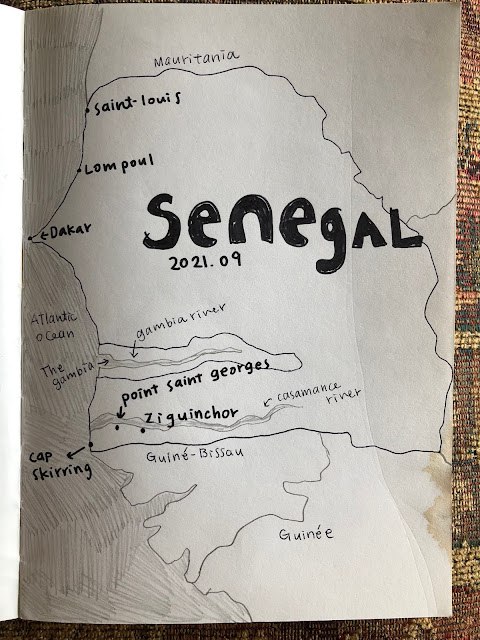 Mauritania
saint-louis
Lompoul
senegAL
←DAKAR
2021.09
Atlantic
ocean
gambia river
The
gambia
point saint georges
casamance
river
Ziguinchor
cap
skirring
Guiné-Bissau
Guinée